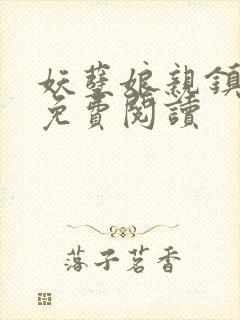 妖孽娘親鎮
免費閱讀
落子茗香